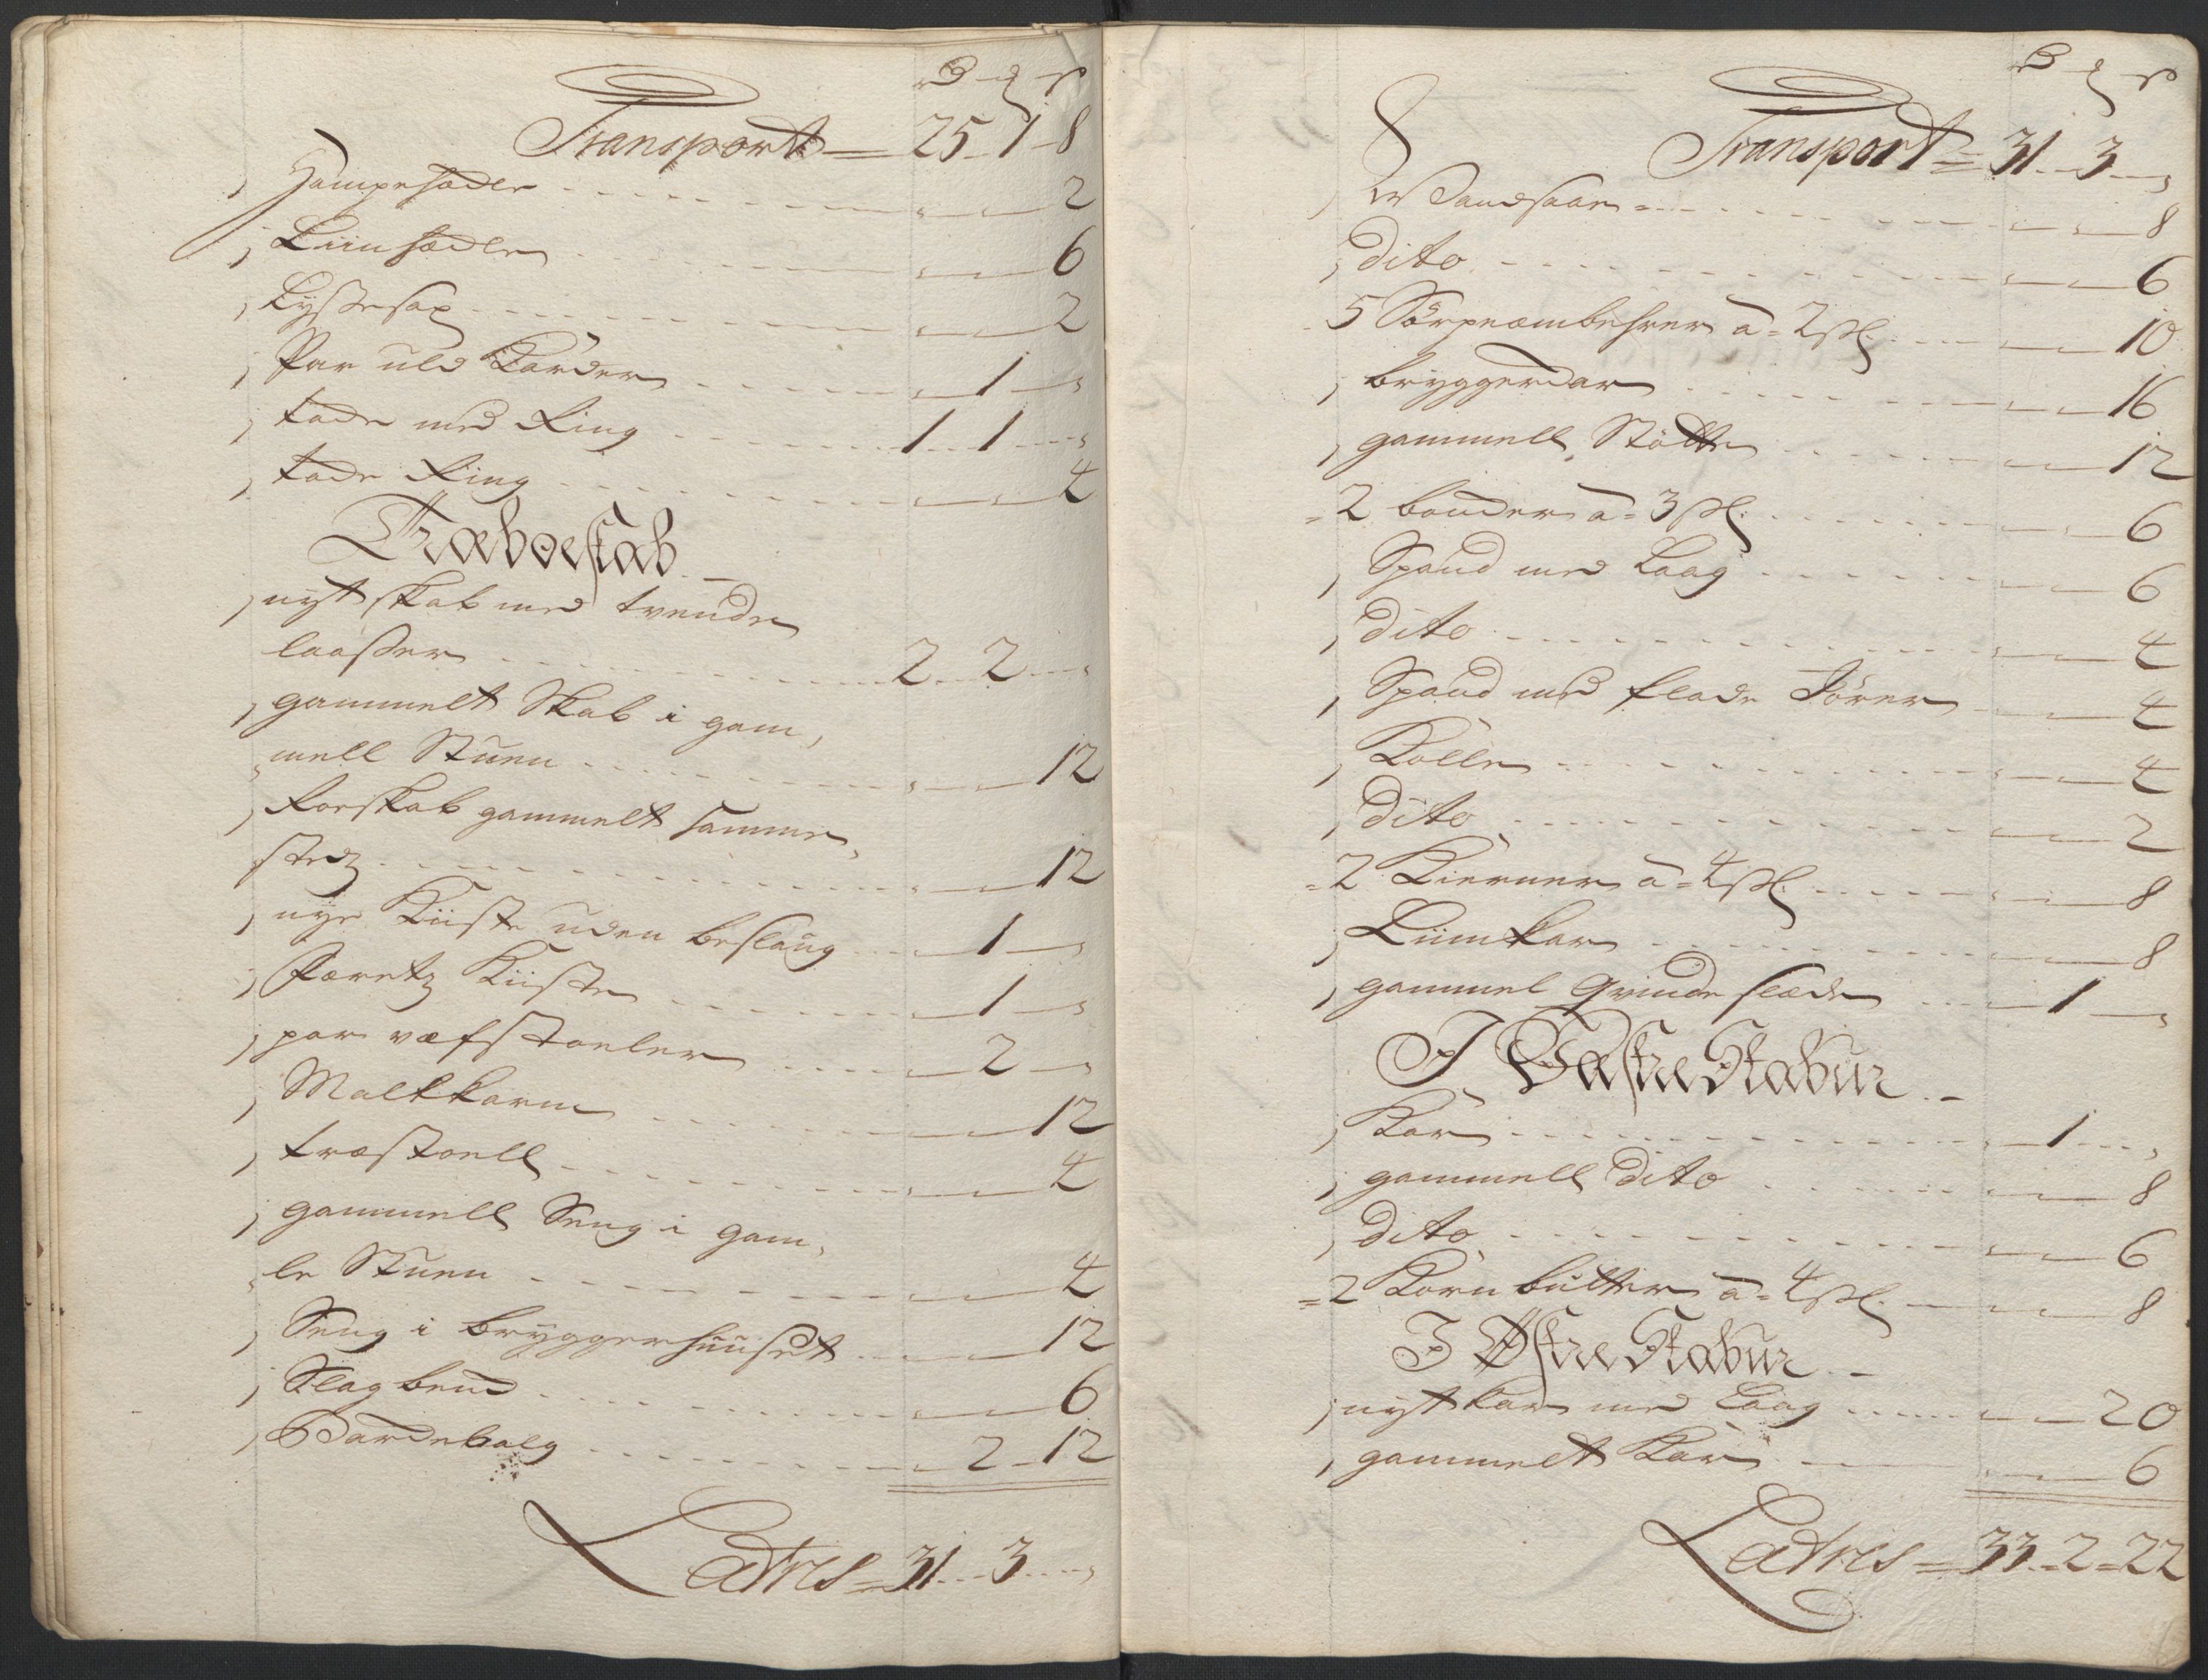 Transport = 25 - 1 - 8
1 Hampesæde - - - 2
1 Liinsæde - - - 6
1 Lyssesax - - - 2
1 Par uld Karder - - - 1 -
1 tade med Ring - - - 1 - 1 -
1 tade Ring - - - 4
Træboeskab
1 nyt skab med tvende
laasser - - - 2 - 2 -
1 gammelt Skab i gam,
mell Stuen - - - 12
1 Roeskab gammelt samme,
stedz - - - 12
1 nye Kiiste uden beslaug - - - 1 -
1 Færetz Kiiste - - - 1 -
1 par væfstoeler - - - 2 -
1 Maltkarm - - - 12
1 træstoell - - - 4
1 gammell Seng i gam,
le Stuen - - - 4
1 Seng i bryggerhuuset - - - 12
1 Slagbend - - - 6
1 Bardebalg - - - 2 - 12
Latus = 31 - 3 -
Transport = 31 - 3 -
1 Vandsaae - - - 8
1 dito - - - 6
5 Sørpeæmbehrer a 2 sl. - - - 10
1 bryggerdar - - - 16
1 gammell Støtte - - - 12
2 bonder a 3 sl. - - - 6
1 Spand med Laag - - - 6
1 dito - - - 4
1 Spand med flade Jører - - - 4
1 Kolle - - - 4
1 dito - - - 2
2 Kierner a 4 sl. - - - 8
1 Liimkar - - - 8
1 gammel Qvinde slæde - - - 1 -
I Væstre Stabur
1 Kar - - - 1 -
1 gammell dito - - - 8
1 dito - - - 6
2 Korn bøtter a 4 sl. - - - 8
I Østre Stabur
1 nyt kar med Laag - - - 20
1 gammelt Kar - - - 6
Latus = 33 - 2 - 22